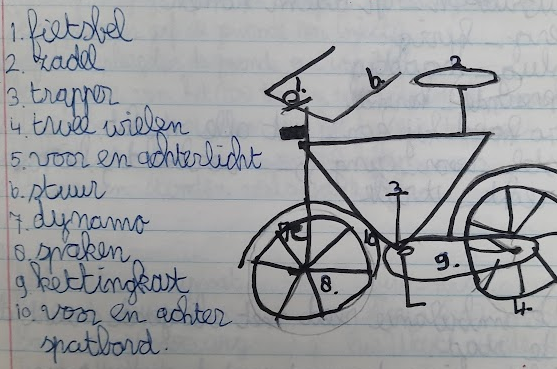 1. fietsbel
2. zadel
3. trapper
4. twee wielen
5. voor en achterlicht
6. stuur
7. dynamo
8. spaken
9 kettingkast
10. voor en achter
spatbord.
1.
6.
2
3
7
10
8.
9.
4.